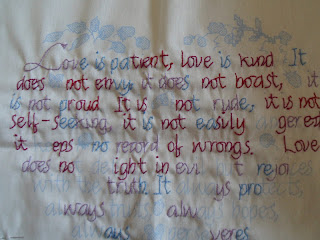 Love is patient, love is kind It
does not envy it does not boast, it
is not proud It is not rude, it is not
self-seeking, it is not easily angered
it eps no record of wrongs. Love
does no ight in evi t rejoices
with the truth. It always protects,
always trusts always hopes,
always perseveres